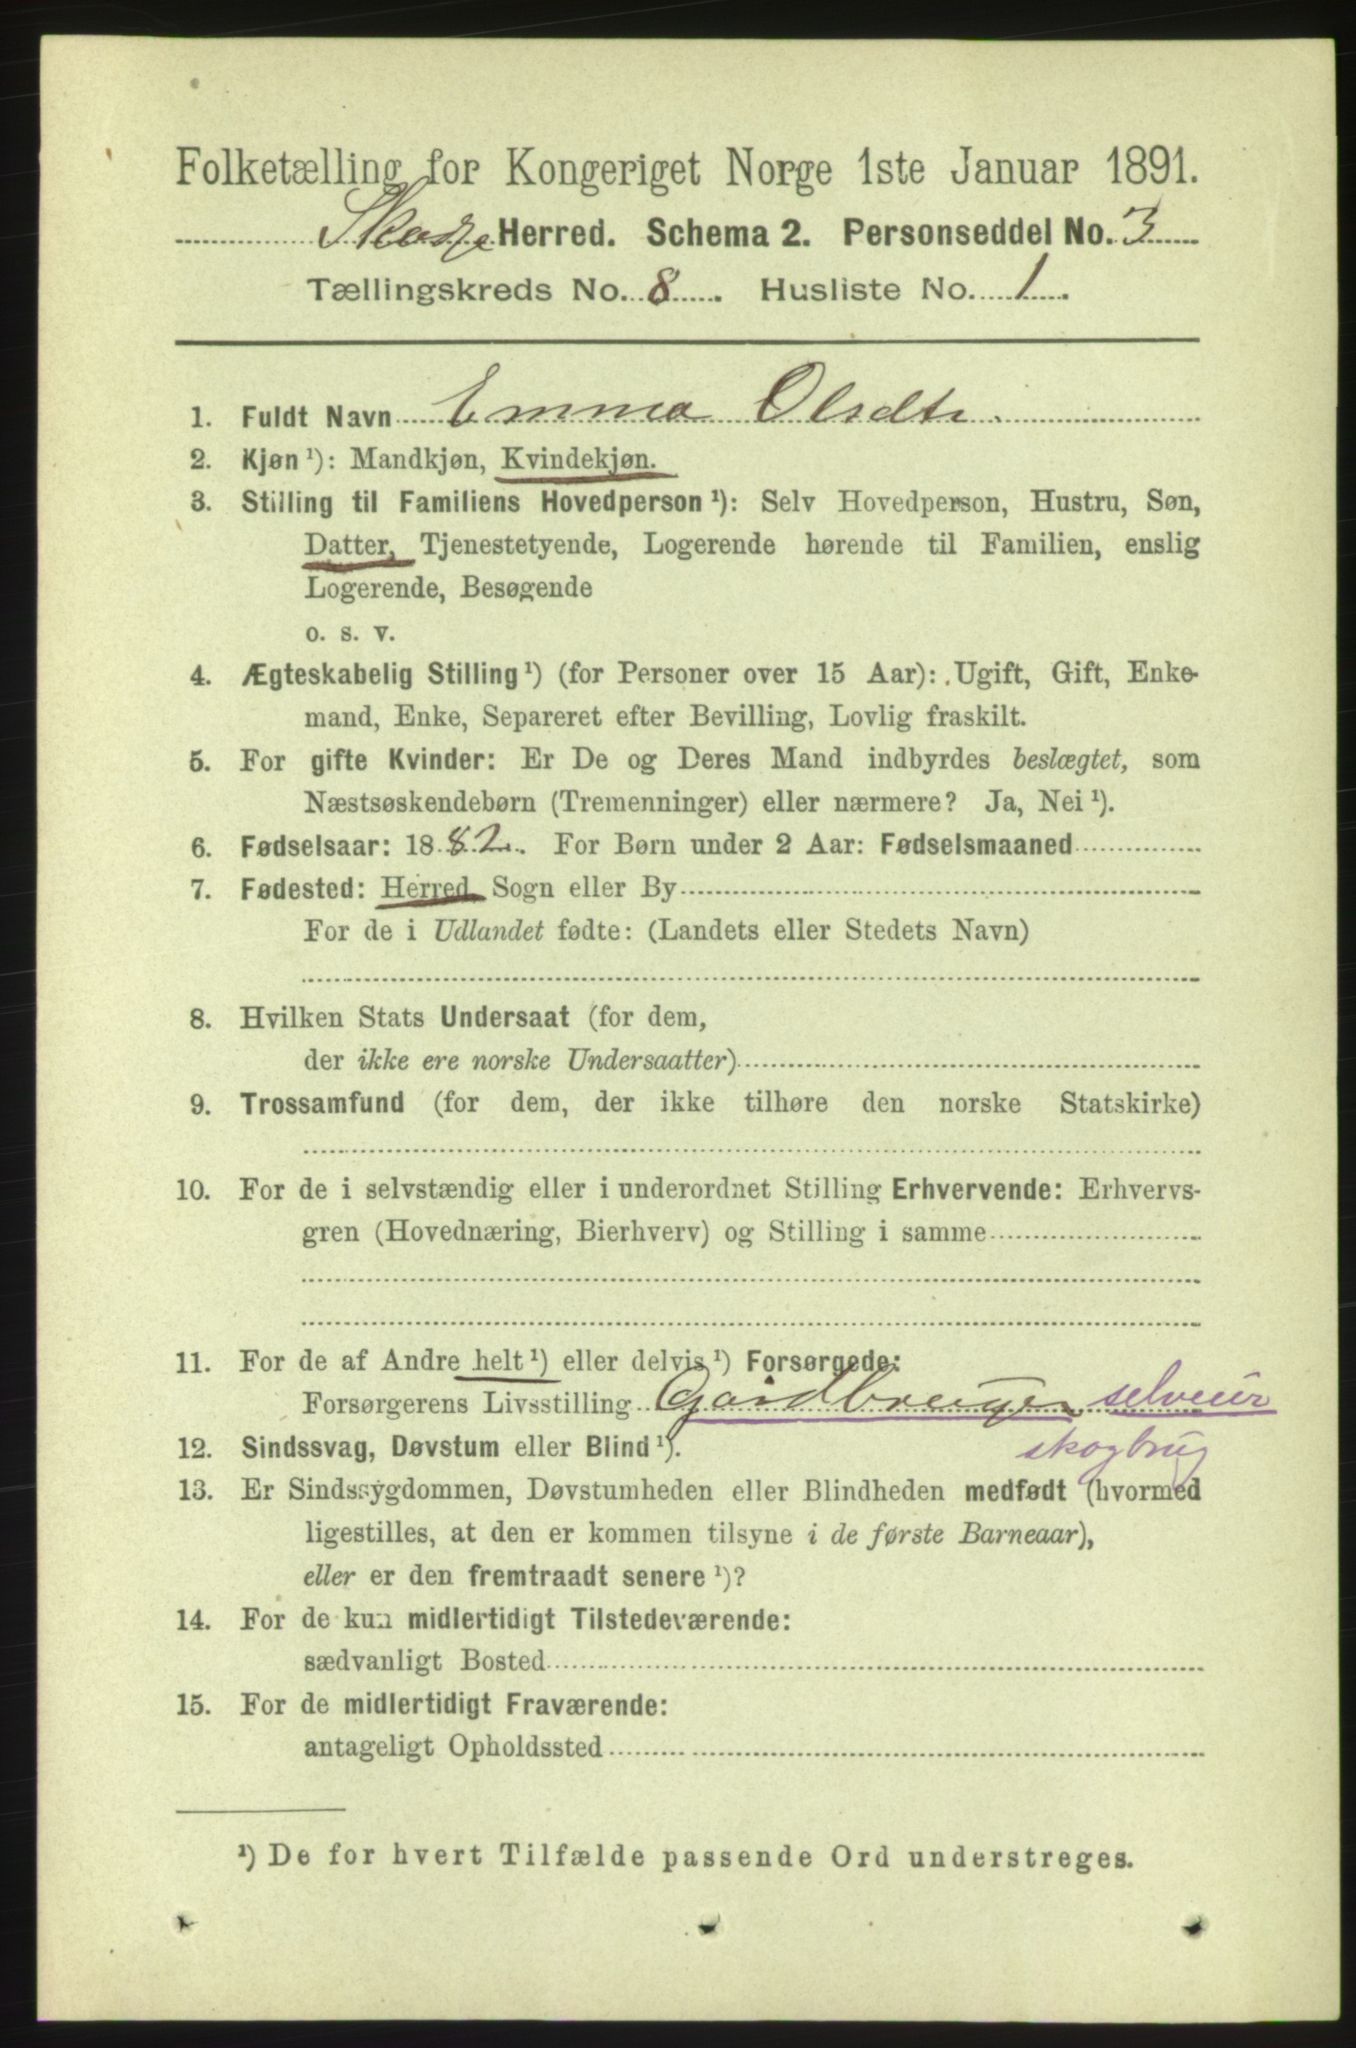 Folketælling for Kongeriget Norge 1ste Januar 1891.
Herred. Schema 2. Personseddel No. 3
Tællingskreds No. 8. Husliste No. 1.
1. Fuldt Navn Emma Olsdtr.
2. Kjøn ¹): Mandkjøn, Kvindekjøn.
3. Stilling til Familiens Hovedperson ¹): Selv Hovedperson, Hustru, Søn,
Datter, Tjenestetyende, Logerende hørende til Familien, enslig
Logerende, Besøgende
o. s. v.
4. Ægteskabelig Stilling ¹) (for Personer over 15 Aar): Ugift, Gift, Enke-
mand, Enke, Separeret efter Bevilling, Lovlig fraskilt.
5. For gifte Kvinder: Er De og Deres Mand indbyrdes beslægtet, som
Næstsøskendebørn (Tremenninger) eller nærmere? Ja, Nei ¹).
6. Fødselsaar: 1882. For Børn under 2 Aar: Fødselsmaaned
7. Fødested: Herred, Sogn eller By
For de i Udlandet fødte: (Landets eller Stedets Navn)
8. Hvilken Stats Undersaat (for dem,
der ikke ere norske Undersaatter)
9. Trossamfund (for dem, der ikke tilhøre den norske Statskirke)
10. For de i selvstændig eller i underordnet Stilling Erhvervende: Erhvervs-
gren (Hovednæring, Bierhverv) og Stilling i samme
11. For de af Andre helt ¹) eller delvis ¹) Forsørgede:
Forsørgerens Livsstilling Gaardbruger selveier
skogbrug
12. Sindssvag, Døvstum eller Blind ¹).
13. Er Sindssygdommen, Døvstumheden eller Blindheden medfødt (hvormed
ligestilles, at den er kommen tilsyne i de første Barneaar),
eller er den fremtraadt senere ¹)?
14. For de kun midlertidigt Tilstedeværende:
sædvanligt Bosted
15. For de midlertidigt Fraværende:
antageligt Opholdssted
¹) De for hvert Tilfælde passende Ord understreges.